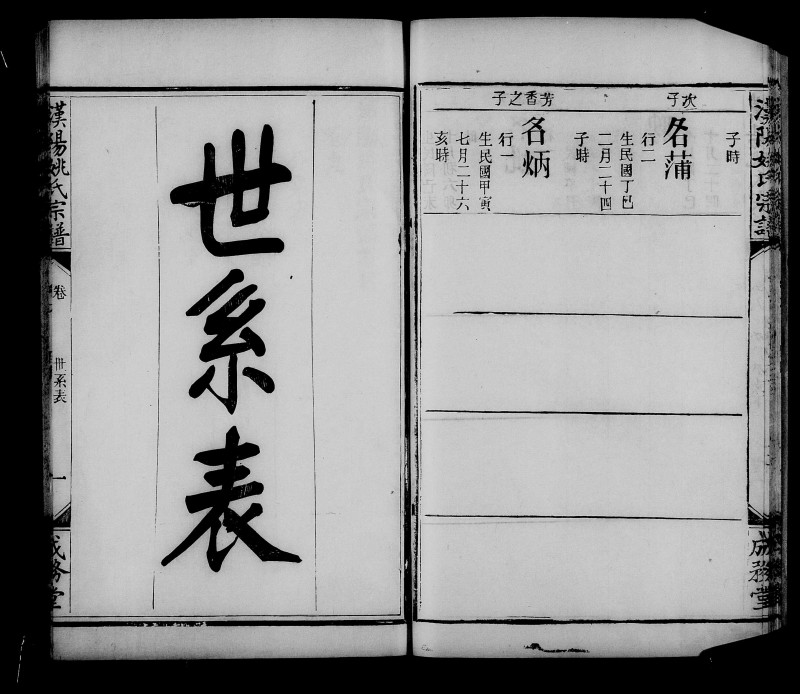 漢陽姚氏宗譜
成務堂
子時
次子
名蒲
行二
生民國丁巳
二月二十四
子時
芳香之子
名炳
行一
生民國甲寅
七月二十六
亥時
世系表
漢陽姚氏宗譜
卷
世系表
一
成務堂